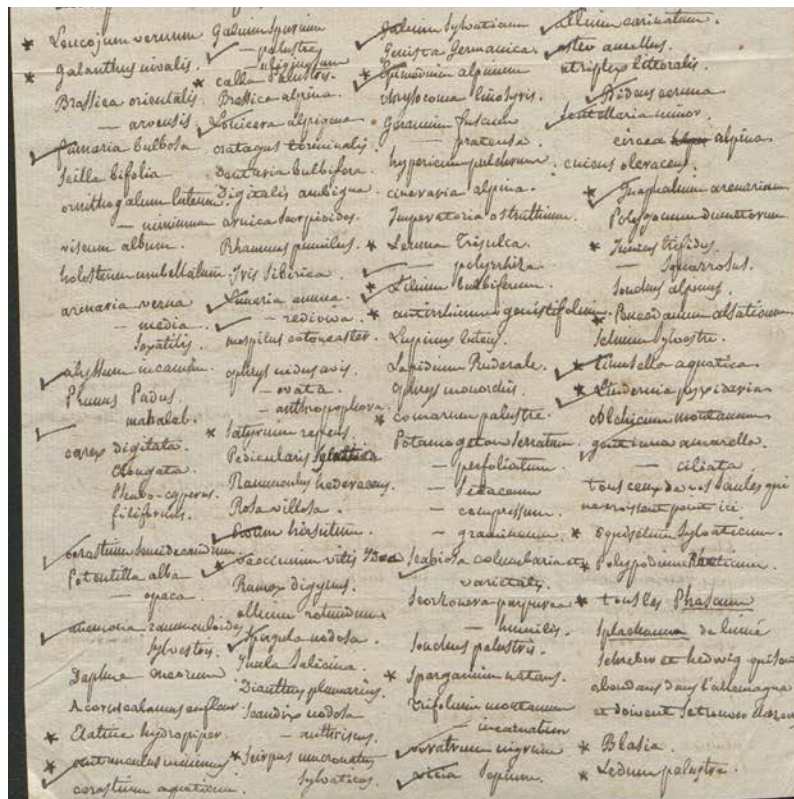 * Leucojum vernum
* galanthus nivalis.
Brassica orientalis
— arvensis.
✓ fumaria bulbosa
Scilla bifolia
ornithogalum luteum
— minimum
viscum album.
holosteum umbellatum.
arenaria verna
— media.
saxatilis.
✓ alyssum incanum.
Prunus Padus.
mahaleb.
✓
carex digitata.
elongata.
Pseudo-cyperus.
filiformis.
✓ cerastium semidecandrum
Potentilla alba
— opaca.
✓ anemone ranunculoides
sylvestris.
Daphne cneorum
Acorus calamus en fleur
* Elatine hydropiper.
* ✓ centunculus minimus
cerastium aquaticum.
galium spurium
✓ — palustre
— uliginosum
* calla Palustris.
Brassica alpina.
✓ Lonicera alpigena
crataegus torminalis.
Dentaria bulbifera.
Digitalis ambigua.
arnica scorpioides.
Rhamnus pumilus.
Iris sibirica.
✓ Lunaria annua.
✓ — rediviva.
mespilus cotoneaster.
ophrys nidus avis.
— ovata.
— anthropophora.
* satyrium repens.
Pedicularis
Ranunculus hederaceus.
Rosa villosa.
✓ hirsutum.
* ✓ vaccinium vitis Idaea
Rumex digynus.
allium rotundum
✓ Spergula nodosa.
Inula salicina.
Dianthus plumarius.
Scandix nodosa
— anthriscus.
* Scirpus mucronatus
sylvaticus.
✓ galium sylvaticum
Genista Germanica.
* ✓ Epimedium alpinum
chrysocoma linosyris.
Geranium fuscum
— pratense.
hypericum pulchrum.
cineraria alpina.
Imperatoria ostruthium.
* Lemna Trisulca.
✓ — polyrrhiza
* ✓ Lilium bulbiferum.
* antirrhinum genistifolium.
Lupinus luteus.
Lepidium Ruderale.
Ophrys monorchis.
* comarum palustre.
Potamogeton serratum.
— perfoliatum.
— setaceum
— compressum.
— gramineum.
✓ Scabiosa columbaria et
varietates.
Scorzonera purpurea
— humilis.
Sonchus palustris.
* Sparganium natans.
Trifolium montanum
— incarnatum
✓ veratrum nigrum
✓ vicia sepium.
✓ allium carinatum.
✓ aster amellus.
atriplex littoralis.
✓ Bidens cernua
✓ scutellaria minor.
circea alpina
cnicus oleraceus.
* ✓ Gnaphalium arenarium
Polygonum dumetorum
* Juncus trifidus.
— squarrosus.
Sonchus alpinus.
* Peucedanum alsaticum.
selinum sylvestre.
* ✓ limosella aquatica.
* ✓ Lindernia pyxidaria
colchicum montanum
gentiana amarella.
— ciliata.
tous ceux de vos saules qui
ne croissent point ici.
* equisetum sylvaticum.
* Polypodium Rhaeticum.
* tous les Phascum
Splachnum de linné
Schreber et hedwig qui sont
abondans dans l'allemagne
et doivent se trouver
* Blasia.
* Ledum palustre.